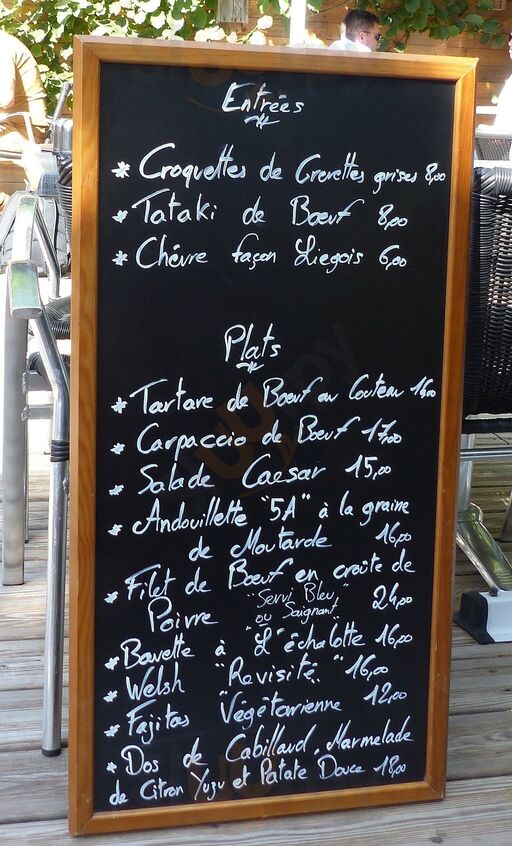 Entrées
* Croquettes de Crevettes grises 8,00
* Tataki de Bœuf 8,00
* Chévre façon Liegois 6,00
Plats
* Tartare de Bœuf au Couteau 16,00
* Carpaccio de Bœuf 17,00
* Salade Caesar 15,00
* Andouillette "5A" à la graine
de Moutarde 16,00
* Filet de Bœuf en croûte de
Poivre "Servi Bleu 24,00
ou Saignant"
* Bavette à "L'échalotte 16,00
* Welsh "Revisité" 16,00
* Fajitas Végétarienne 12,00
* Dos de Cabillaud, Marmelade
de Citron Yuzu et Patate Douce 18,00